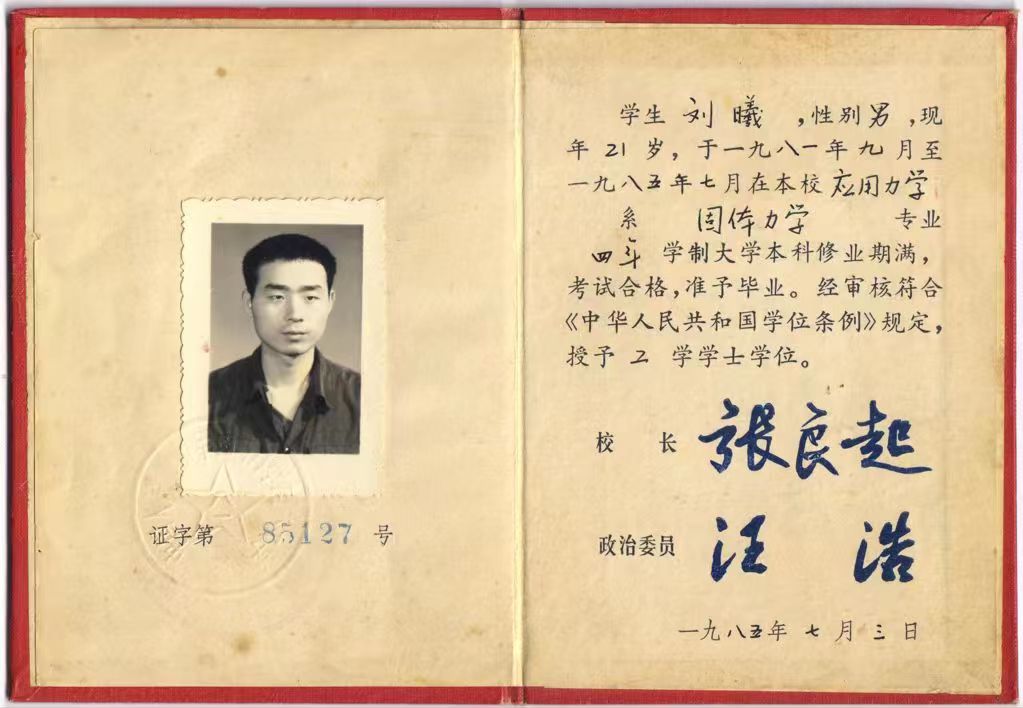 证字第 85127 号
学生 刘曦 ,性别男,现
年 21 岁,于一九八一年九月至
一九八五年七月在本校应用力学
系 固体力学 专业
四年 学制大学本科修业期满,
考试合格,准予毕业。经审核符合
《中华人民共和国学位条例》规定,
授予 工 学学士学位。
校 长 张良起
政治委员 汪 浩
一九八五年 七 月 三 日